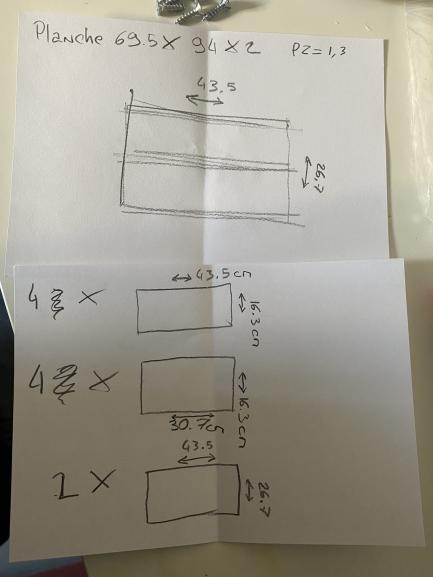 Planche 69.5 X 94 X 2 P2 = 1,3
43.5
26,7
43.5cm
4 X
16.3 cm
4 X
16.3 cm
30.7cm
43.5
2 X
26.7